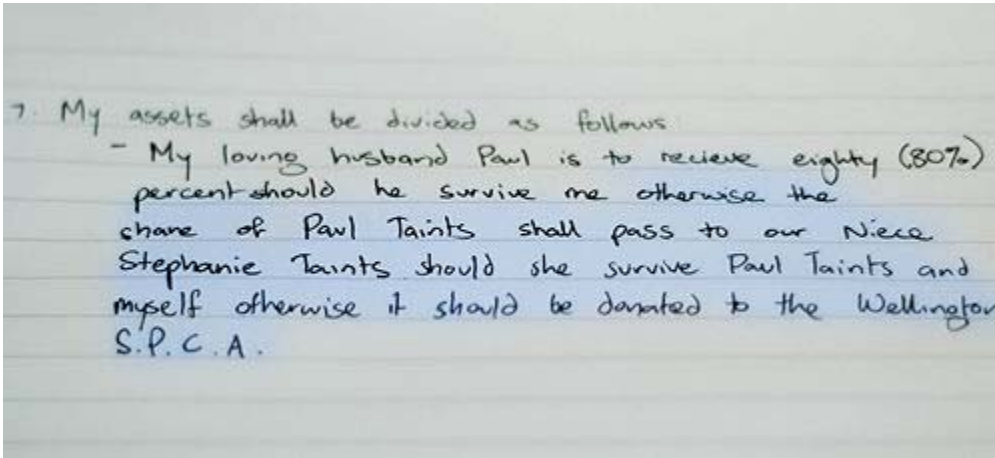 7. My assets shall be divided as follows
- My loving husband Paul is to recieve eighty (80%)
percent should he survive me otherwise the
share of Paul Taints shall pass to our Niece
Stephanie Taints should she survive Paul Taints and
myself otherwise it should be donated to the Wellington
S.P.C.A.